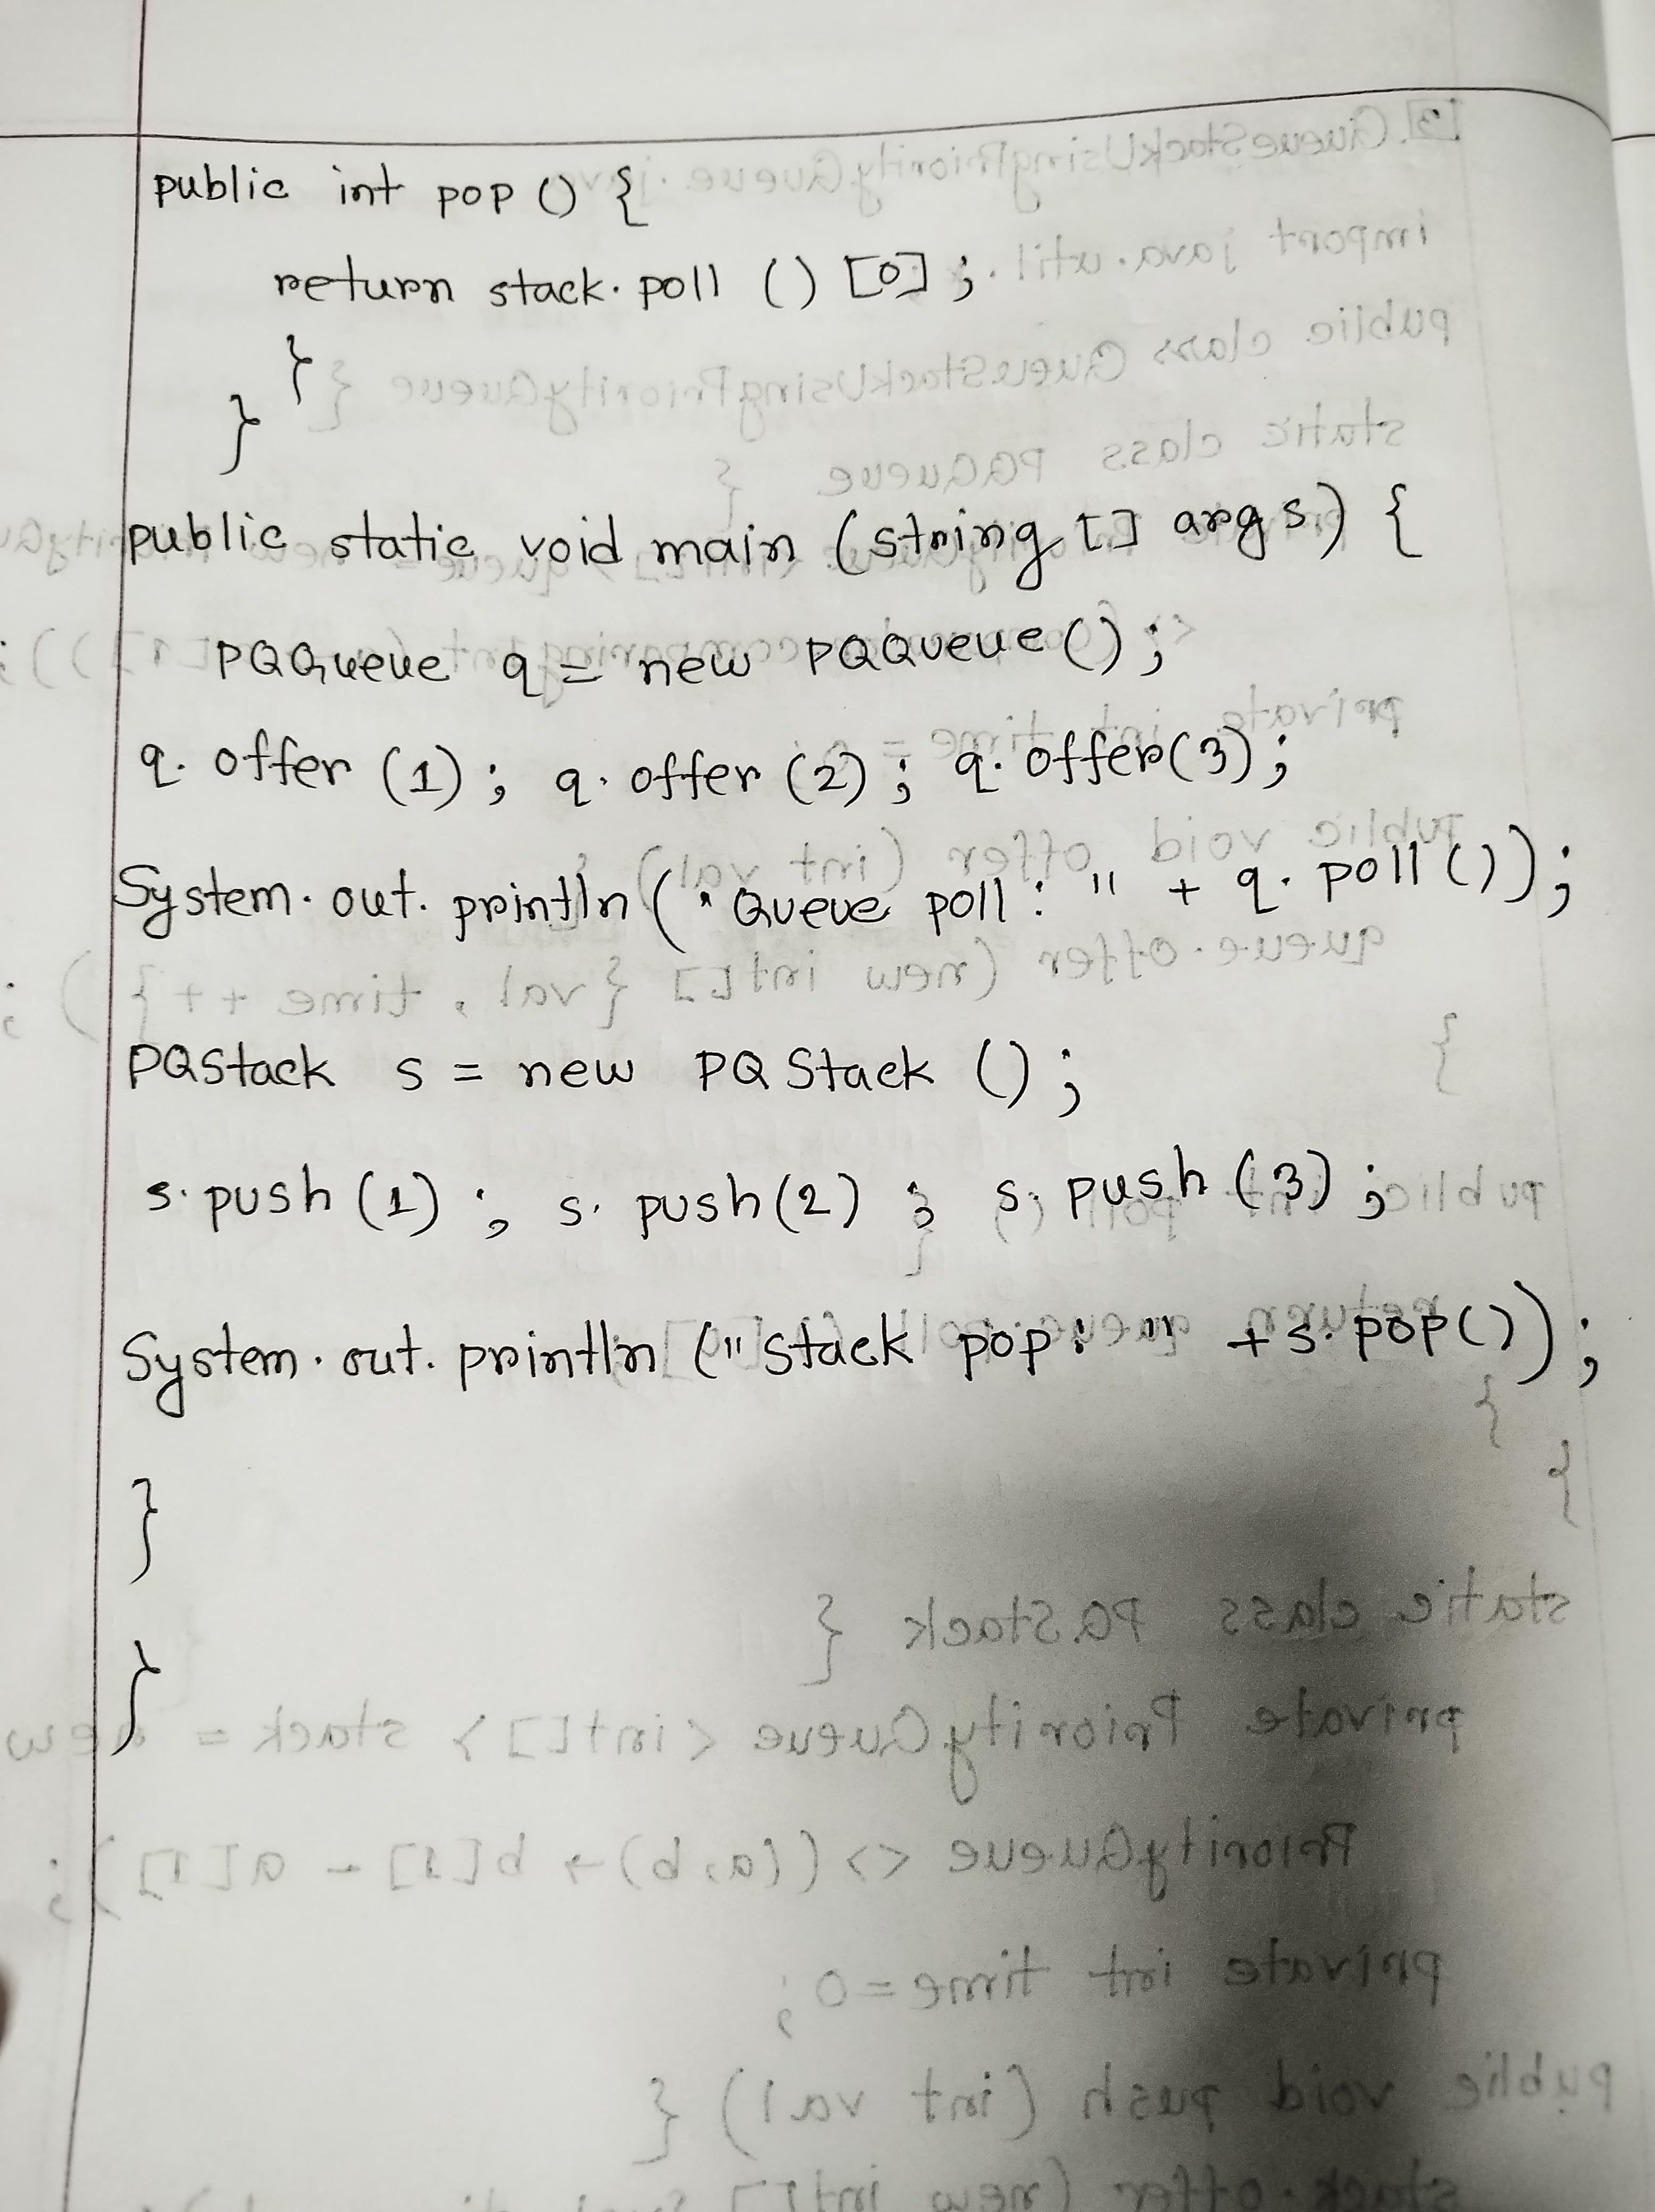 public int pop () {
return stack. poll () [0] ;
}
}
public static void main (string [] args) {
PQQueue q = new PQQueue() ;
q. offer (1) ; q. offer (2) ; q. offer(3) ;
System. out. println ( " Queue poll : " + q. poll ()) ;
PQStack s = new PQ Stack () ;
s. push (1) ; s. push (2) ; s. push (3) ;
System. out. println ("Stack pop : " + s. pop()) ;
}
}